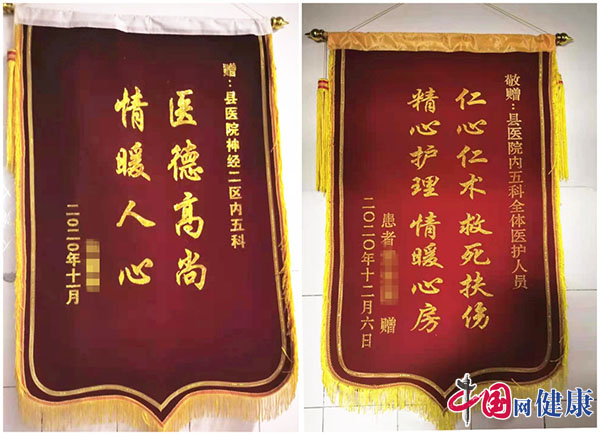 赠:县医院神经二区内五科
医德高尚
情暖人心
二〇二〇年十一月
敬赠:县医院内五科全体医护人员
仁心仁术 救死扶伤
精心护理 情暖心房
患者 赠
二〇二〇年十二月六日
中国网健康